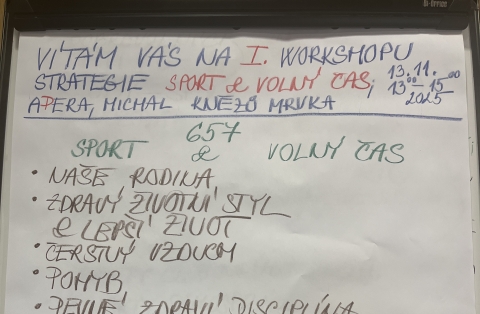 VÍTÁM VÁS NA I. WORKSHOPU
STRATEGIE SPORT & VOLNÝ ČAS, 13.11.
13⁰⁰-15⁰⁰
APERA, MICHAL KNĚŽŮ MRVKA 2025
657
SPORT & VOLNÝ ČAS
• NAŠE RODINA
• ZDRAVÝ ŽIVOTNÍ STYL
& LEPŠÍ ŽIVOT
• ČERSTVÝ VZDUCH
• POHYB
• PEVNÉ ZDRAVÍ DISCIPLÍNA